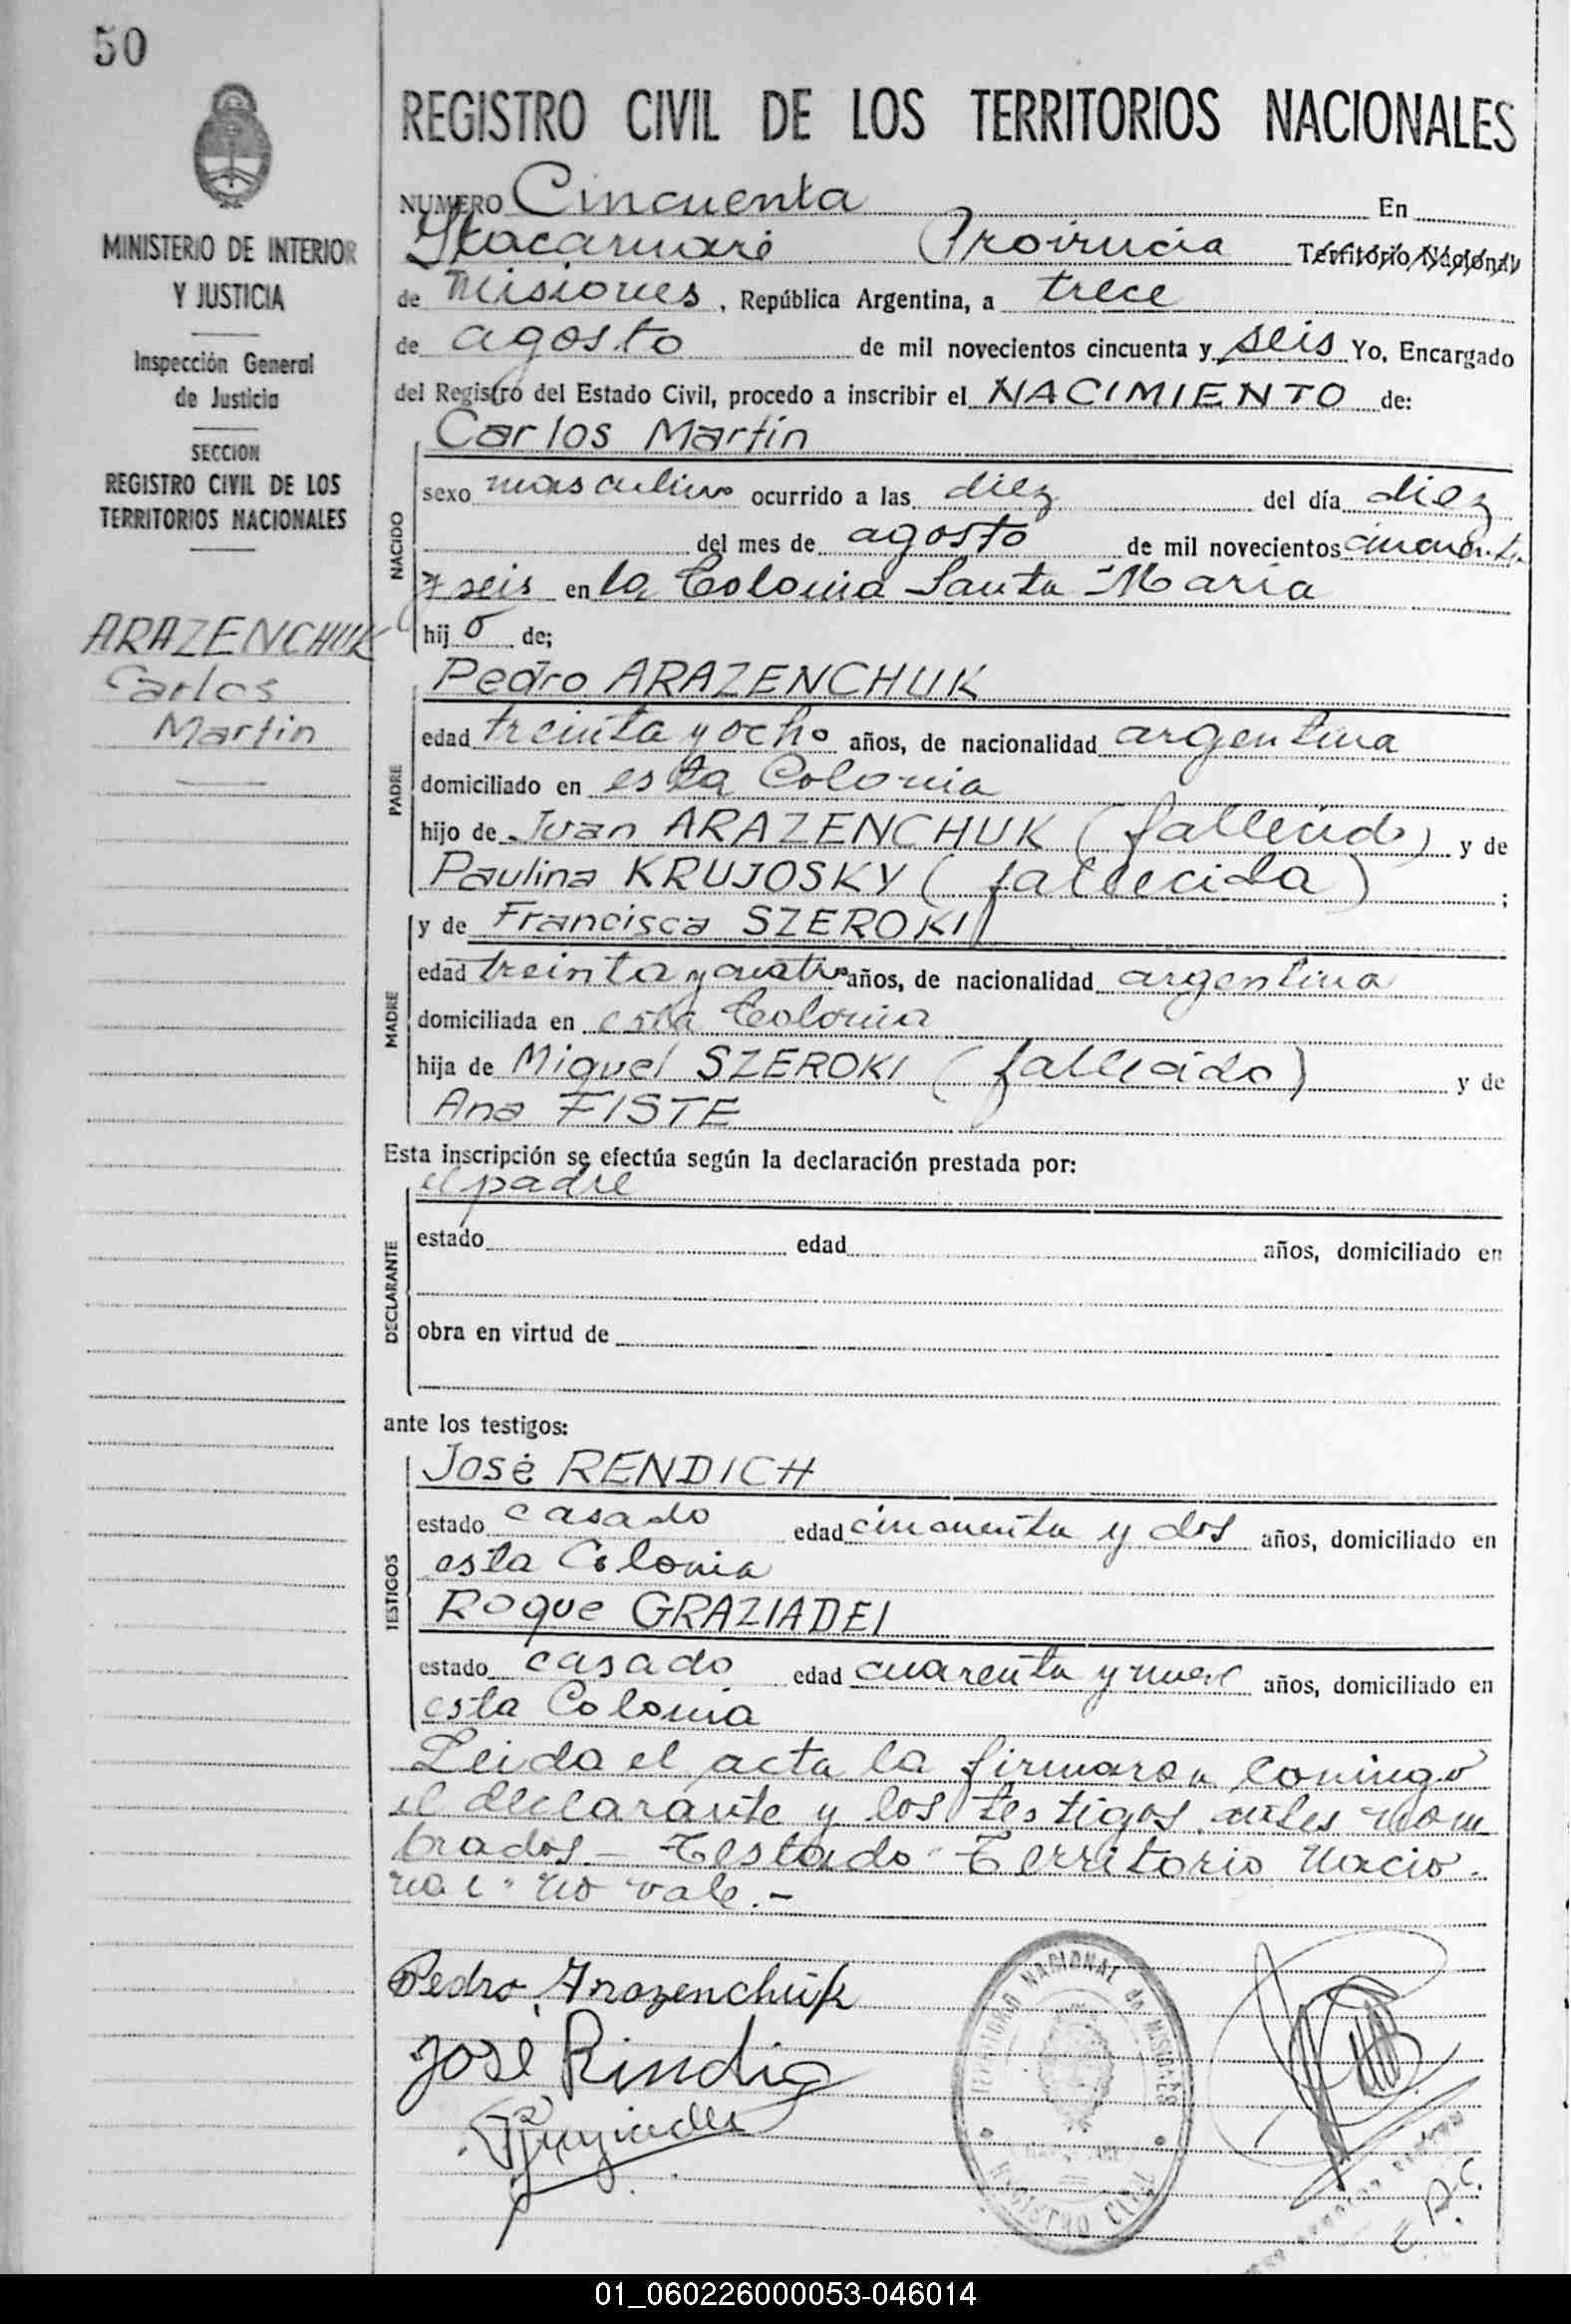 50
MINISTERIO DE INTERIOR
Y JUSTICIA
Inspección General
de Justicia
SECCION
REGISTRO CIVIL DE LOS
TERRITORIOS NACIONALES
ARAZENCHUK
Carlos
Martin
REGISTRO CIVIL DE LOS TERRITORIOS NACIONALES
NUMERO Cincuenta En
Itacaruaré Provincia Territorio Nacional
de Misiones, República Argentina, a trece
de agosto de mil novecientos cincuenta y seis Yo, Encargado
del Registro del Estado Civil, procedo a inscribir el NACIMIENTO de:
NACIDO
Carlos Martin
sexo masculino ocurrido a las diez del día diez
del mes de agosto de mil novecientos cincuenta
y seis en la Colonia Santa Maria
hij o de;
PADRE
Pedro ARAZENCHUK
edad treinta y ocho años, de nacionalidad argentina
domiciliado en esta Colonia
hijo de Juan ARAZENCHUK (fallecido) y de
Paulina KRUJOSKY (fallecida) ;
MADRE
y de Francisca SZEROKI
edad treinta y cuatro años, de nacionalidad argentina
domiciliada en esta Colonia
hija de Miguel SZEROKI (fallecido) y de
Ana FISTE
Esta inscripción se efectúa según la declaración prestada por:
DECLARANTE
el padre
estado edad años, domiciliado en
obra en virtud de
ante los testigos:
TESTIGOS
José RENDICH
estado casado edad cincuenta y dos años, domiciliado en
esta Colonia
Roque GRAZIADEI
estado casado edad cuarenta y nueve años, domiciliado en
esta Colonia
Leida el acta la firmaron conmigo
el declarante y los testigos antes nom
brados.- Testado "Territorio Nacio-
nal" no vale.-
Pedro Arazenchuk
José Rindig
RGraziadei
TERRITORIO NACIONAL DE MISIONES
REGISTRO CIVIL
E.R.C.
01_060226000053-046014